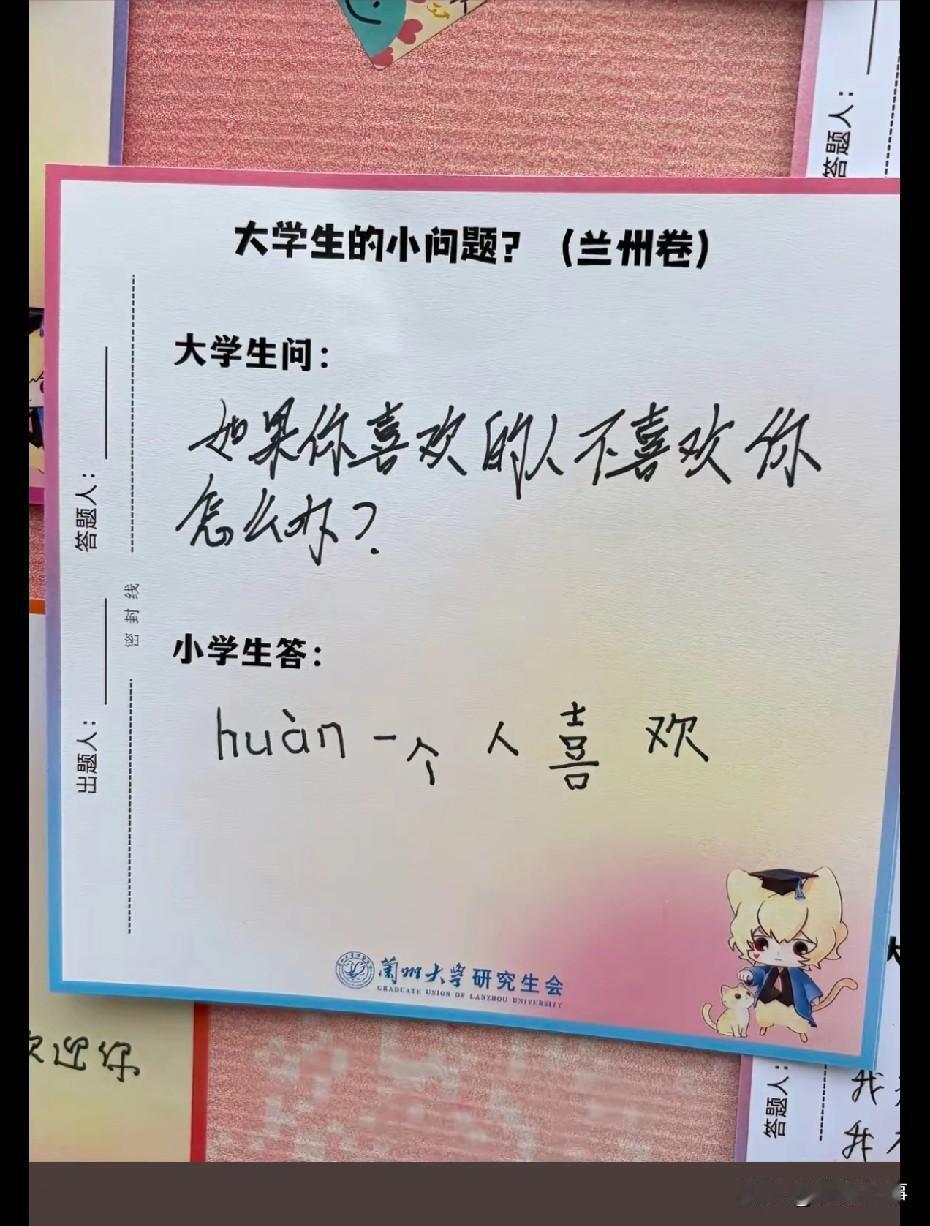 大学生的小问题？（兰州卷）
大学生问：
如果你喜欢的人不喜欢你
怎么办？
小学生答：
huàn一个人喜欢
答题人：
密封线
出题人：
兰州大学研究生会
GRADUATE UNION OF LANZHOU UNIVERSITY
答题人：
答题人：
我
我